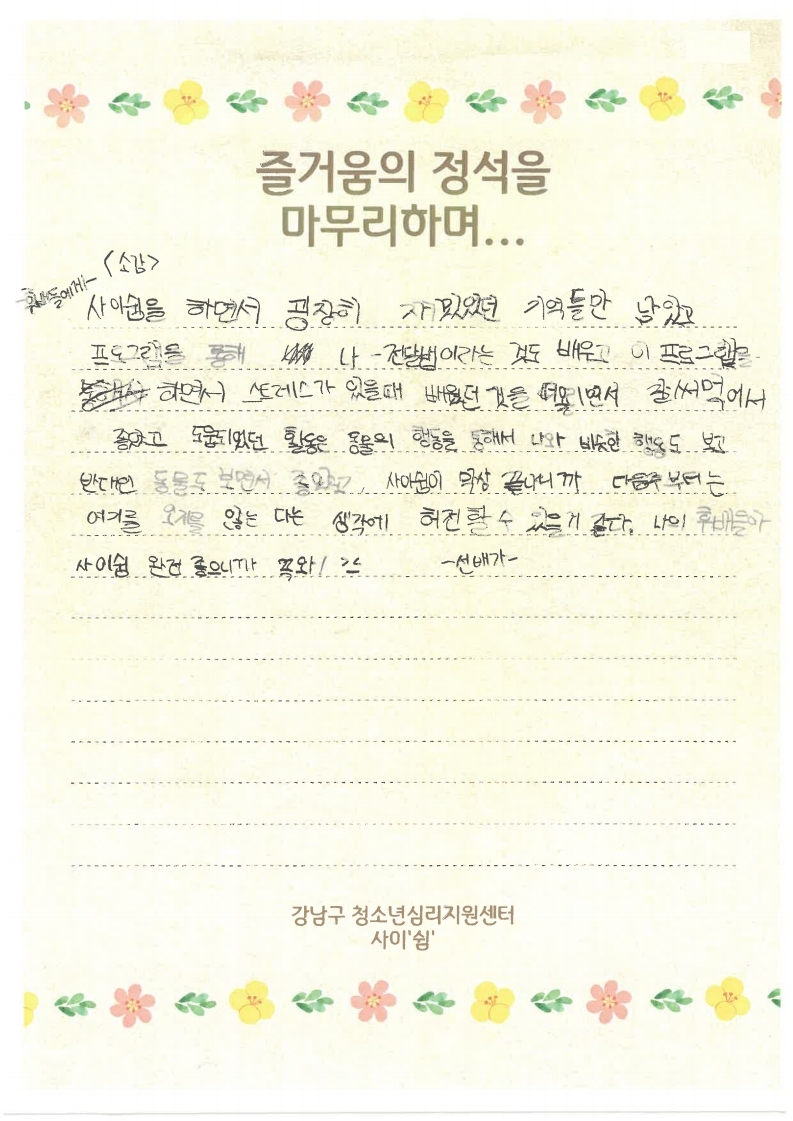 즐거움의 정석을
마무리하며...
<소감>
후배들에게~
사이쉼을 하면서 굉장히 재미있었던 기억들만 남았고
프로그램을 통해 나-전달법이라는 것도 배우고 이 프로그램을
하면서 스트레스가 있을때 배웠던 것을 떠올리면서 잘써먹어서
좋았고 도움되었던 활동은 동물의 행동을 통해서 나와 비슷한 행동도 보고
반대인 동물도 보면서 좋았고, 사이쉼이 막상 끝나니까 다음주부터는
여기를 오지를 않는 다는 생각에 허전할 수 있을거 같다. 나의 후배들아
사이쉼 완전 좋으니까 꼭와! ^^ -선배가-
강남구 청소년심리지원센터
사이'쉼'